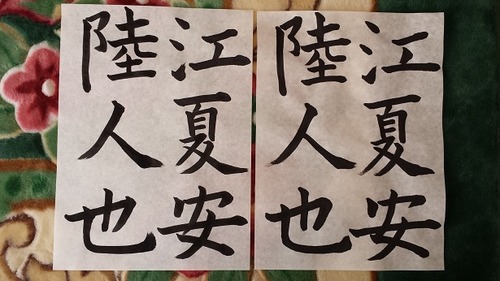 江夏安
陸人也
江夏安
陸人也